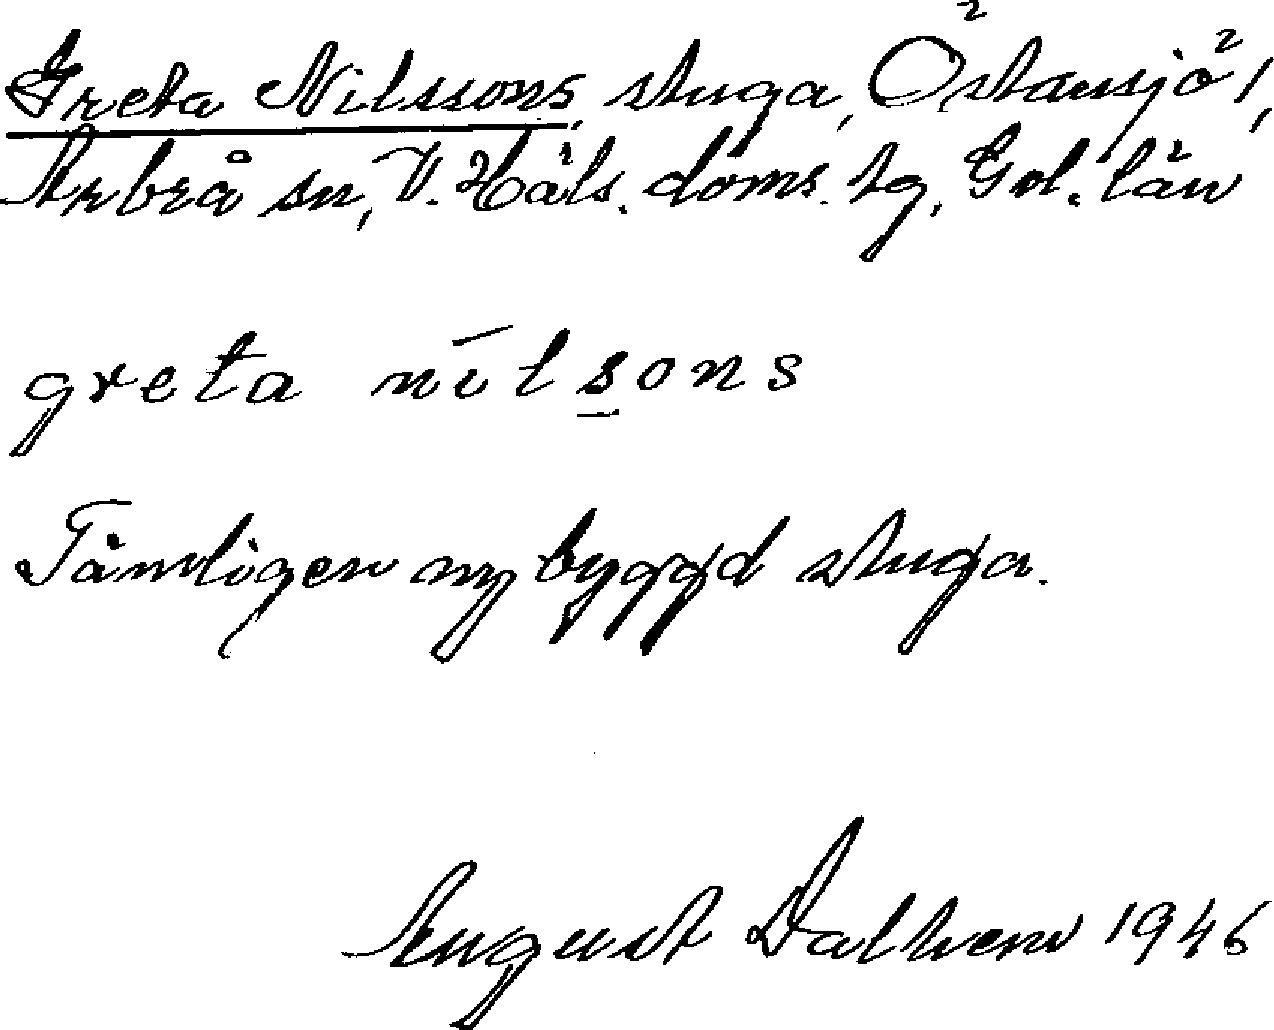 Greta Nilssons, stuga, Östansjö 1,
Arbrå sn, V. Häls. doms. tg, Gvl. län
greta nīlsons
Tämligen nybyggd stuga.
August Dalhem 1946